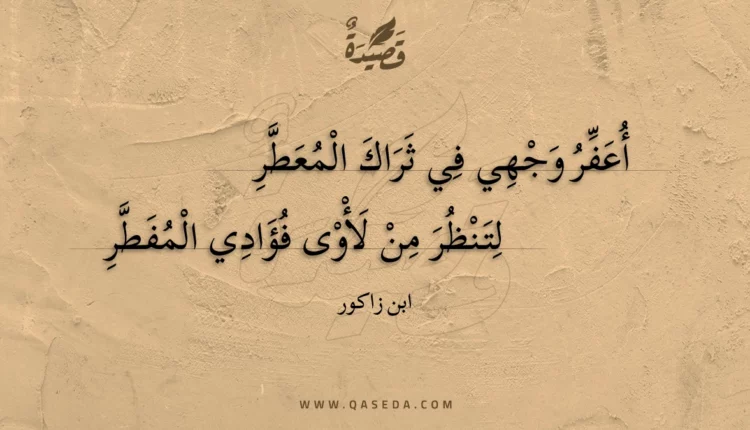 قَصِيدَةٌ
أُعَفِّرُ وَجْهِي فِي ثَرَاكَ الْمُعَطَّرِ
لِتَنْظُرَ مِنْ لَأْوْى فُؤَادِي الْمُفَطَّرِ
ابن زاكور
WWW.QASEDA.COM